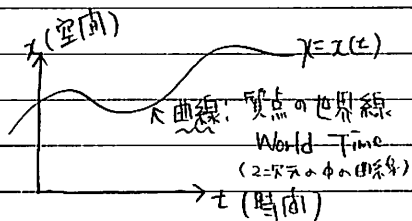 x (空間)
x = x(t)
↖ 曲線: 質点の世界線
World-Time
(2次元の中の曲線)
t (時間)